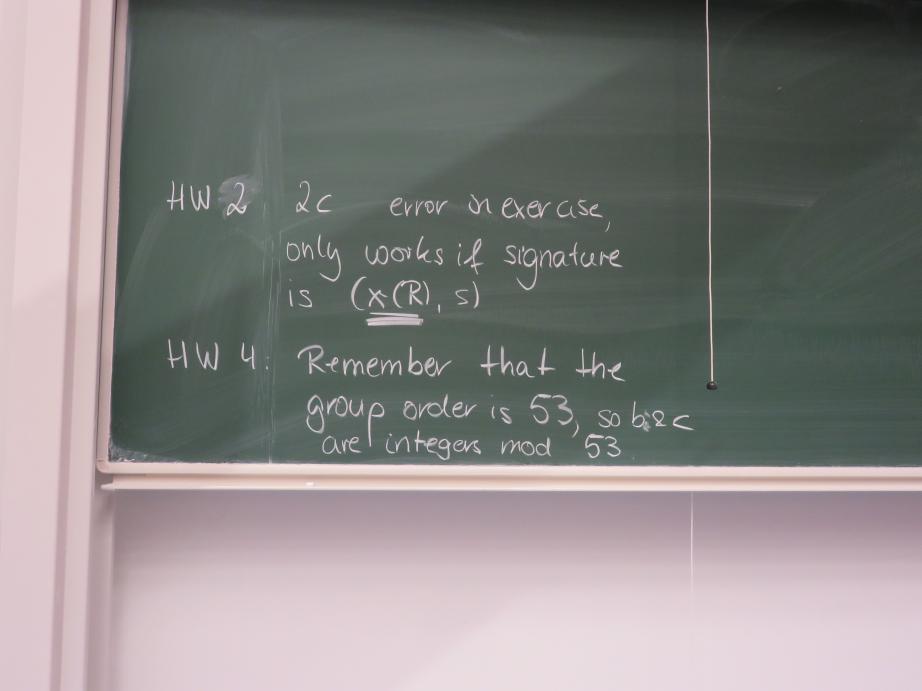 HW 2 2c error in exercise,
only works if signature
is (x(R), s)
HW 4: Remember that the
group order is 53, so b & c
are integers mod 53